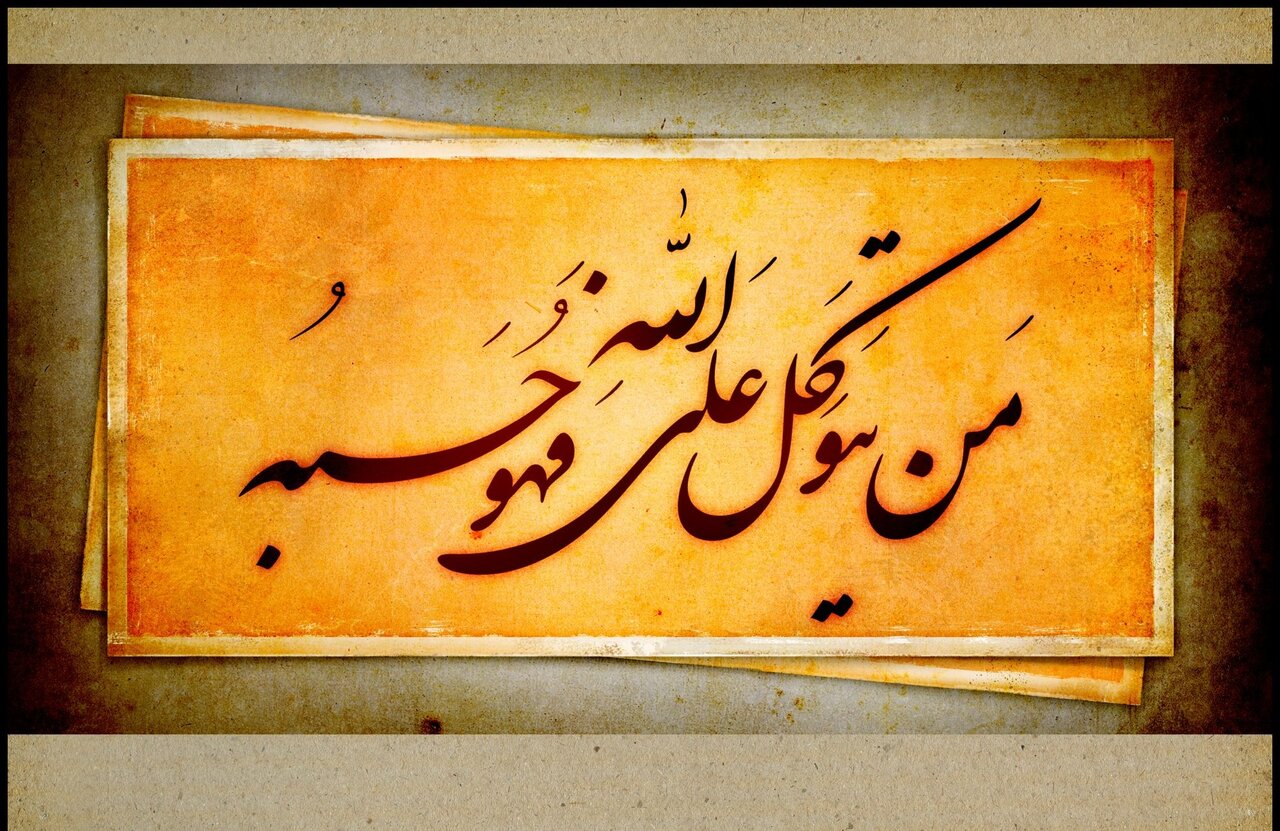 مَن يَتَوَكَل عَلَى اللهِ فَهُوَ حَسبُهُ